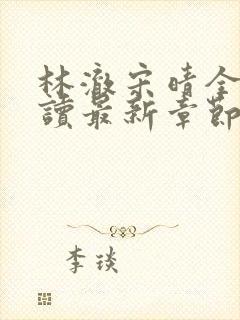 林澈宋晴全
讀最新章節
李琰